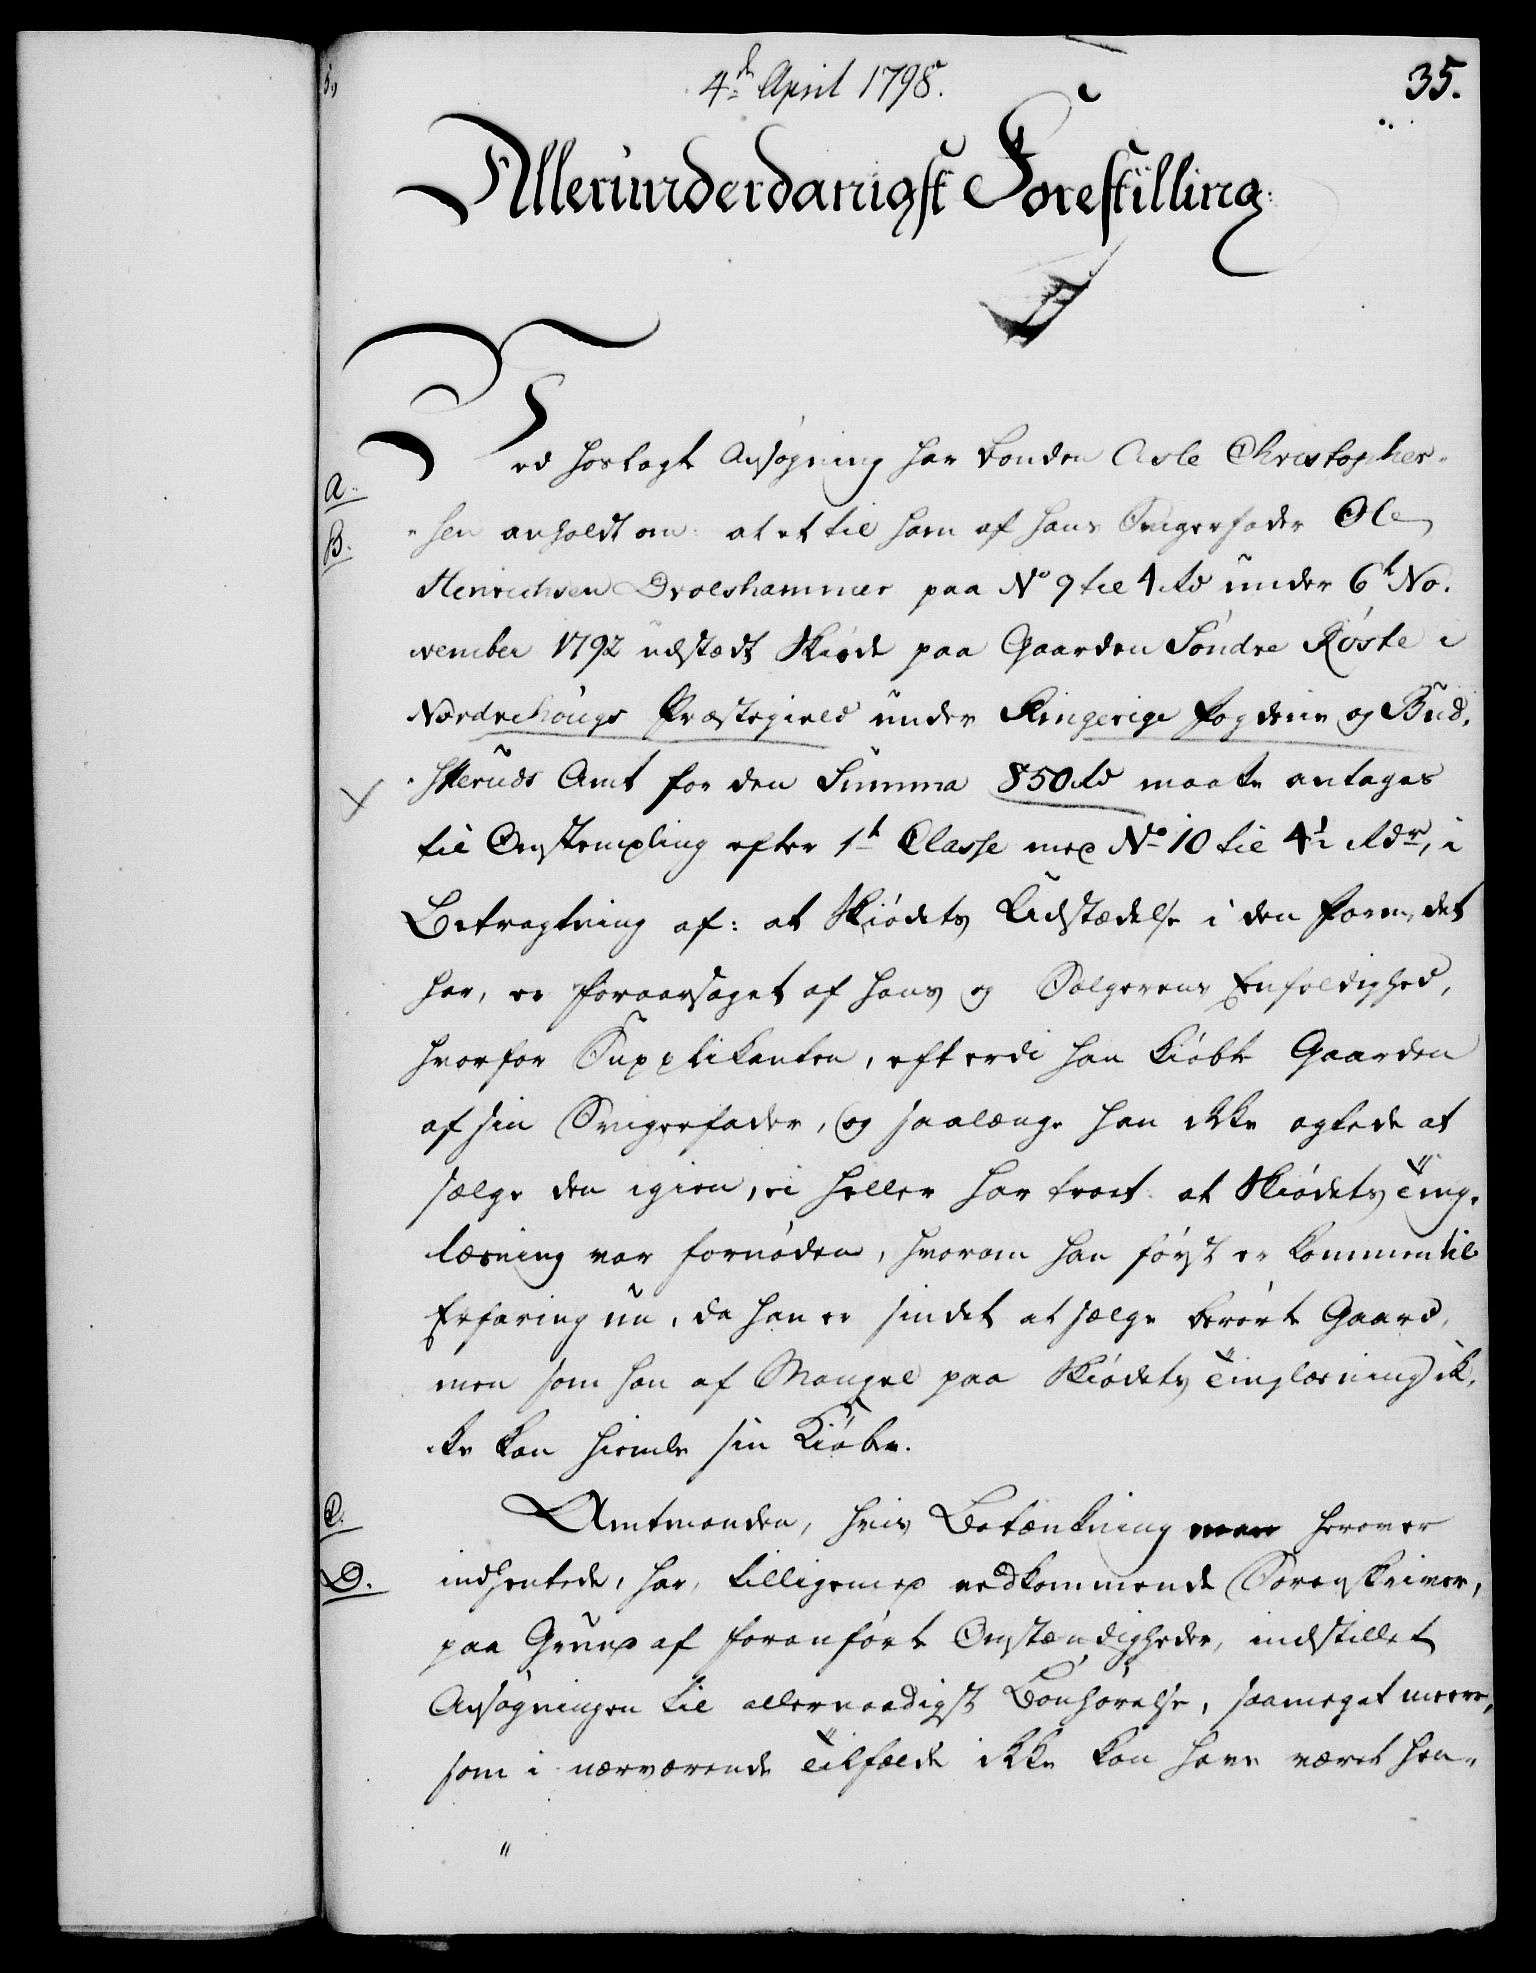 4de April 1798.
35.
Allerunderdanigst Forestilling.
Ved hoslagt Ansøgning har Bonden Asle Christopher-
A.
-sen anholdt om: at et til ham af hans Svigerfader Ole
B.
Henrichsen Drolshammer paa No 9 til 4 rd under 6t No-
vember 1792 udstædt Skiøde paa Gaarden Søndre Røste i
Norderhougs Præstegield under Ringerige Fogderie og Bud-
-skeruds Amt for den Summa 850 rd maatte antages
til Omstempling efter 1t Classe med No 10 til 4½ Rdr, i
Betragtning af: at Skiødets Udstædelse i den Form, det
har, er foraarsaget af hans og Sælgerens Eenfoldighed,
hvorfor Supplikanten, efterdi han kiøbte Gaarden
af sin Svigerfader, og saalænge han ikke agtede at
sælge den igien, ei heller har troet at Skiødets Ting-
læsning var fornøden, hvorom han først er kommen til
Erfaring nu, da han er sindet at sælge berørte Gaard,
men som han af Mangel paa Skiødets Tinglæsning ik-
-ke kan hiemle sin Kiøber.
C.
Amtmanden, hvis Betænkning man herover
D.
indhentede, har, tilligemed vedkommende Sorenskriver,
paa Grund af foranførte Omstændigheder, indstillet
Ansøgningen til allernaadigst Bønhørelse, saameget meere,
som i nærværende Tilfælde ikke kan have været hen-
"